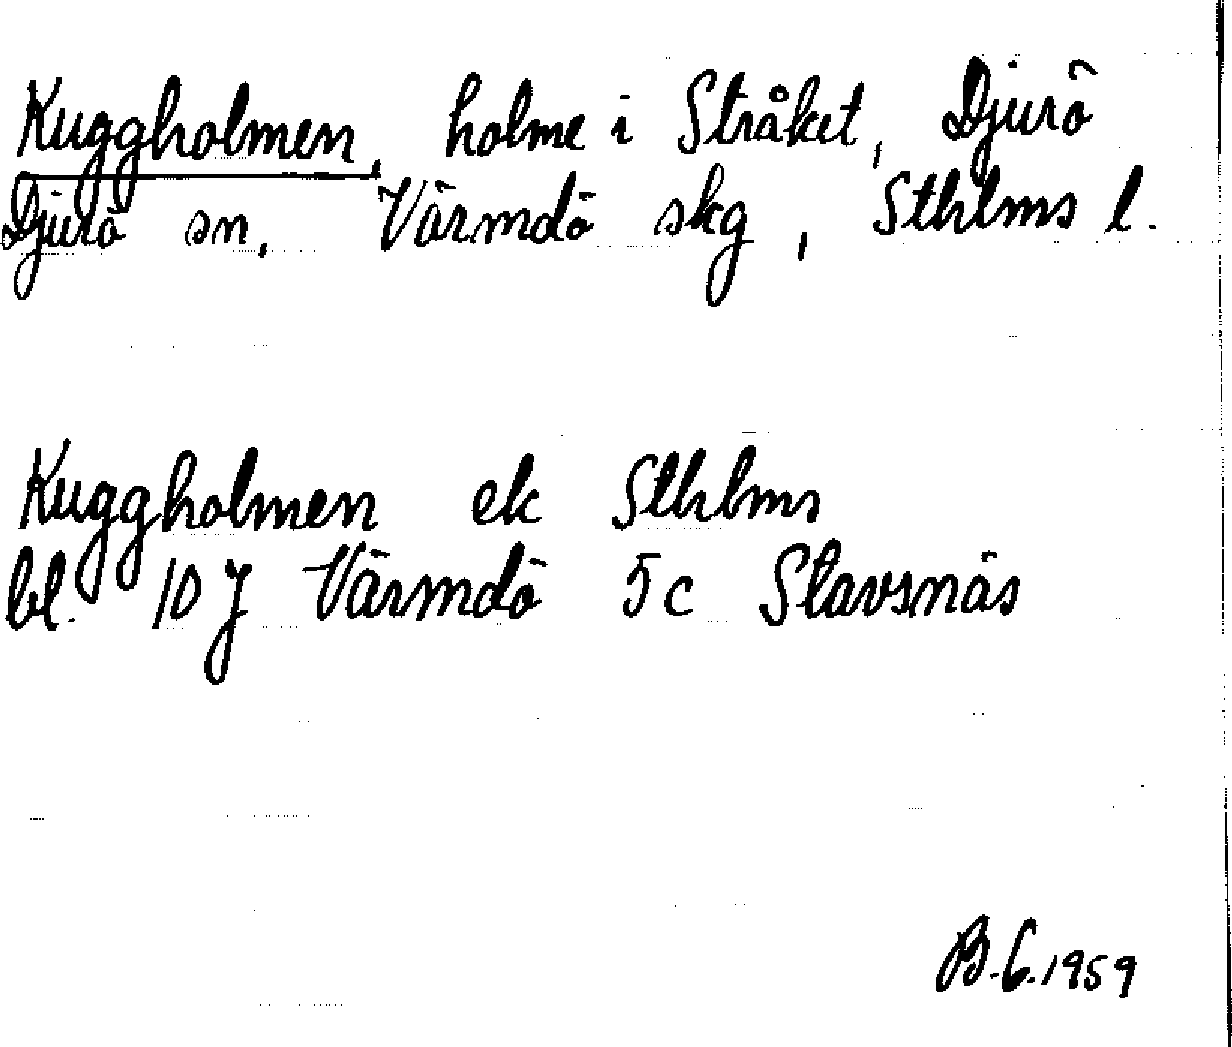 Kuggholmen, holme i Stråket, Djurö
Djurö sn, Värmdö skg, Sthlms l.
Kuggholmen ek Sthlms
bl. 10 J Värmdö 5c Stavsnäs
B-G.1959